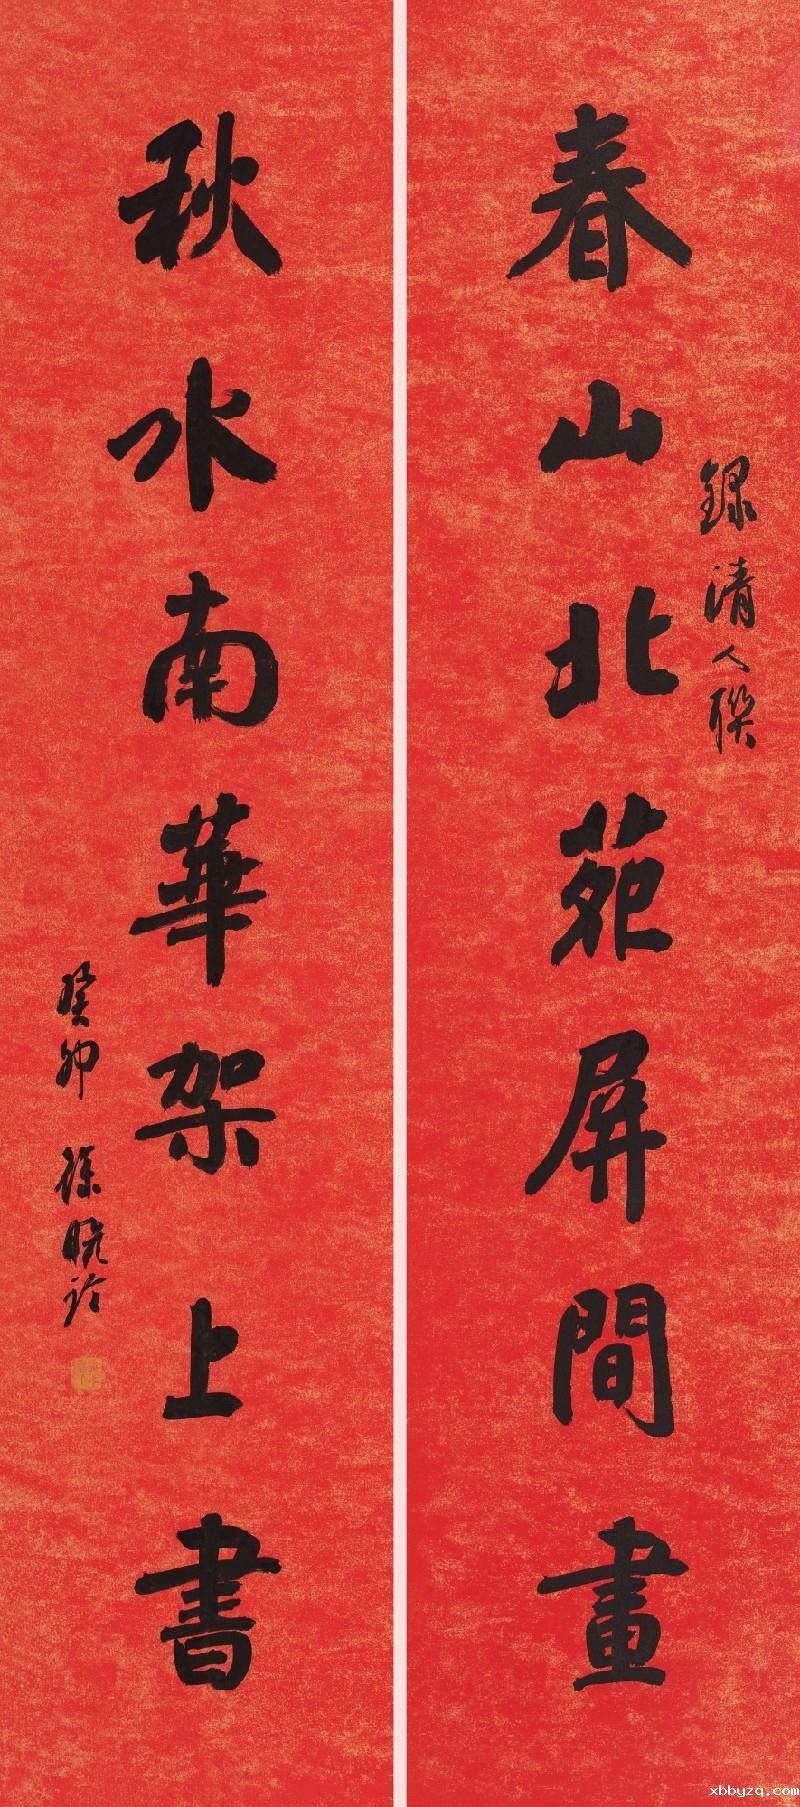 錄清人聯
春山北苑屏間畫
秋水南華架上書
癸卯 徐曉
xbbyzq.com